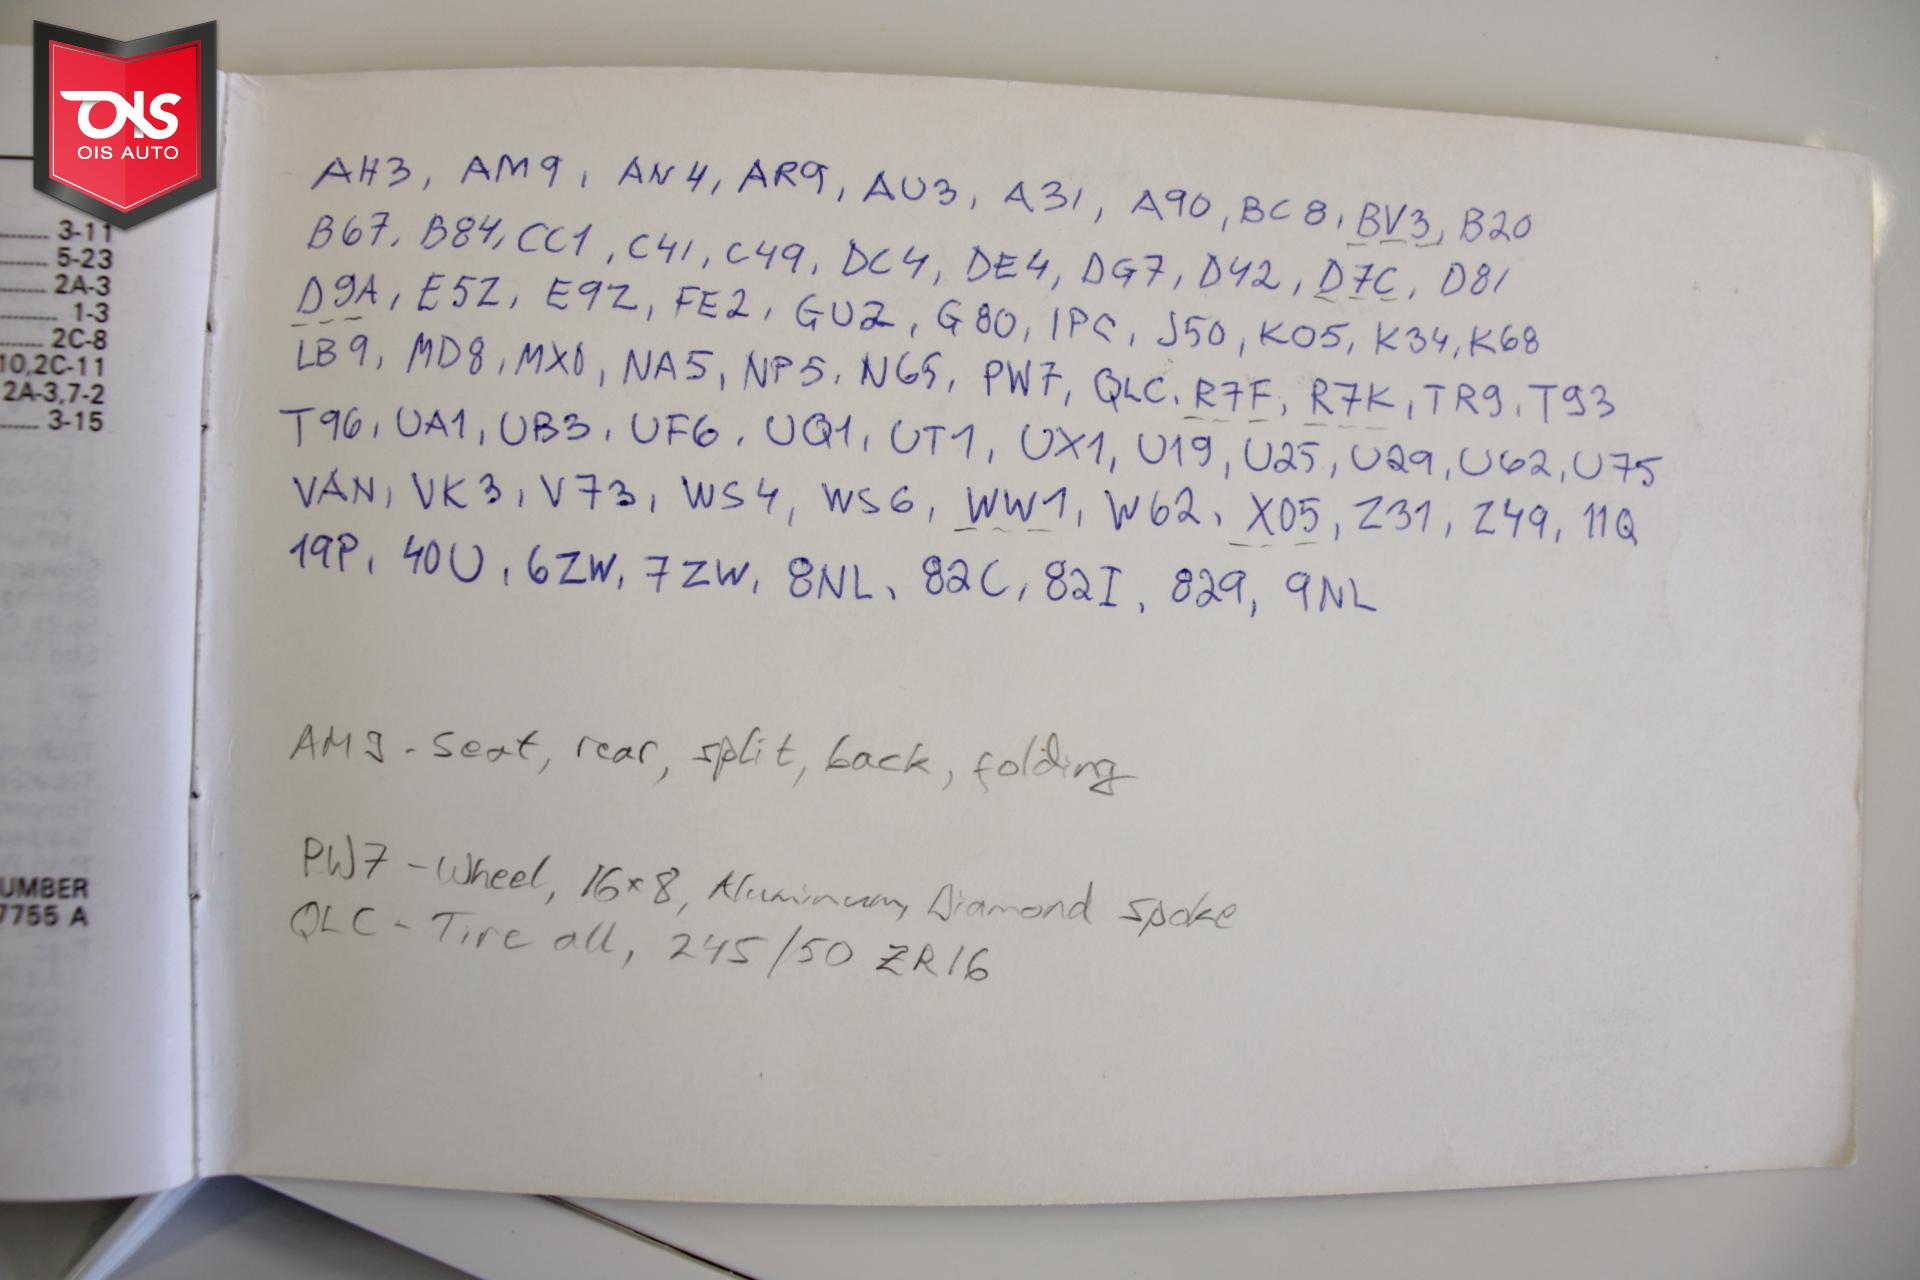 OIS
OIS AUTO
3-11
5-23
2A-3
1-3
2C-8
10,2C-11
2A-3,7-2
3-15
UMBER
7755 A
AH3, AM9, AN4, AR9, AU3, A31, A90, BC8, BV3, B20
B67, B84, CC1, C41, C49, DC4, DE4, DG7, D42, D7C, D81
D9A, E5Z, E9Z, FE2, GU2, G80, IPC, J50, K05, K34, K68
LB9, MD8, MX0, NA5, NP5, N65, PW7, QLC, R7F, R7K, TR9, T93
T96, UA1, UB3, UF6, UQ1, UT1, UX1, U19, U25, U29, U62, U75
VAN, VK3, V73, WS4, WS6, WW1, W62, X05, Z31, Z49, 11Q
19P, 40U, 6ZW, 7ZW, 8NL, 82C, 82I, 829, 9NL
AM9 - Seat, rear, split, back, folding
PW7 - Wheel, 16x8, Aluminum, Diamond spoke
QLC - Tire all, 245/50 ZR16